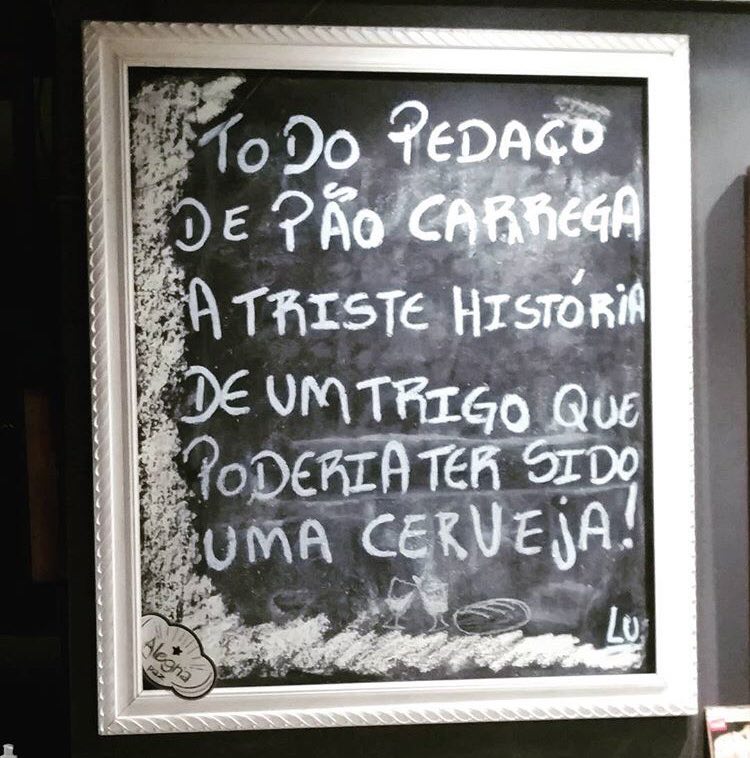 TODO PEDAÇO
DE PÃO CARREGA
A TRISTE HISTÓRIA
DE UM TRIGO QUE
PODERIA TER SIDO
UMA CERVEJA!
LU
Alegria